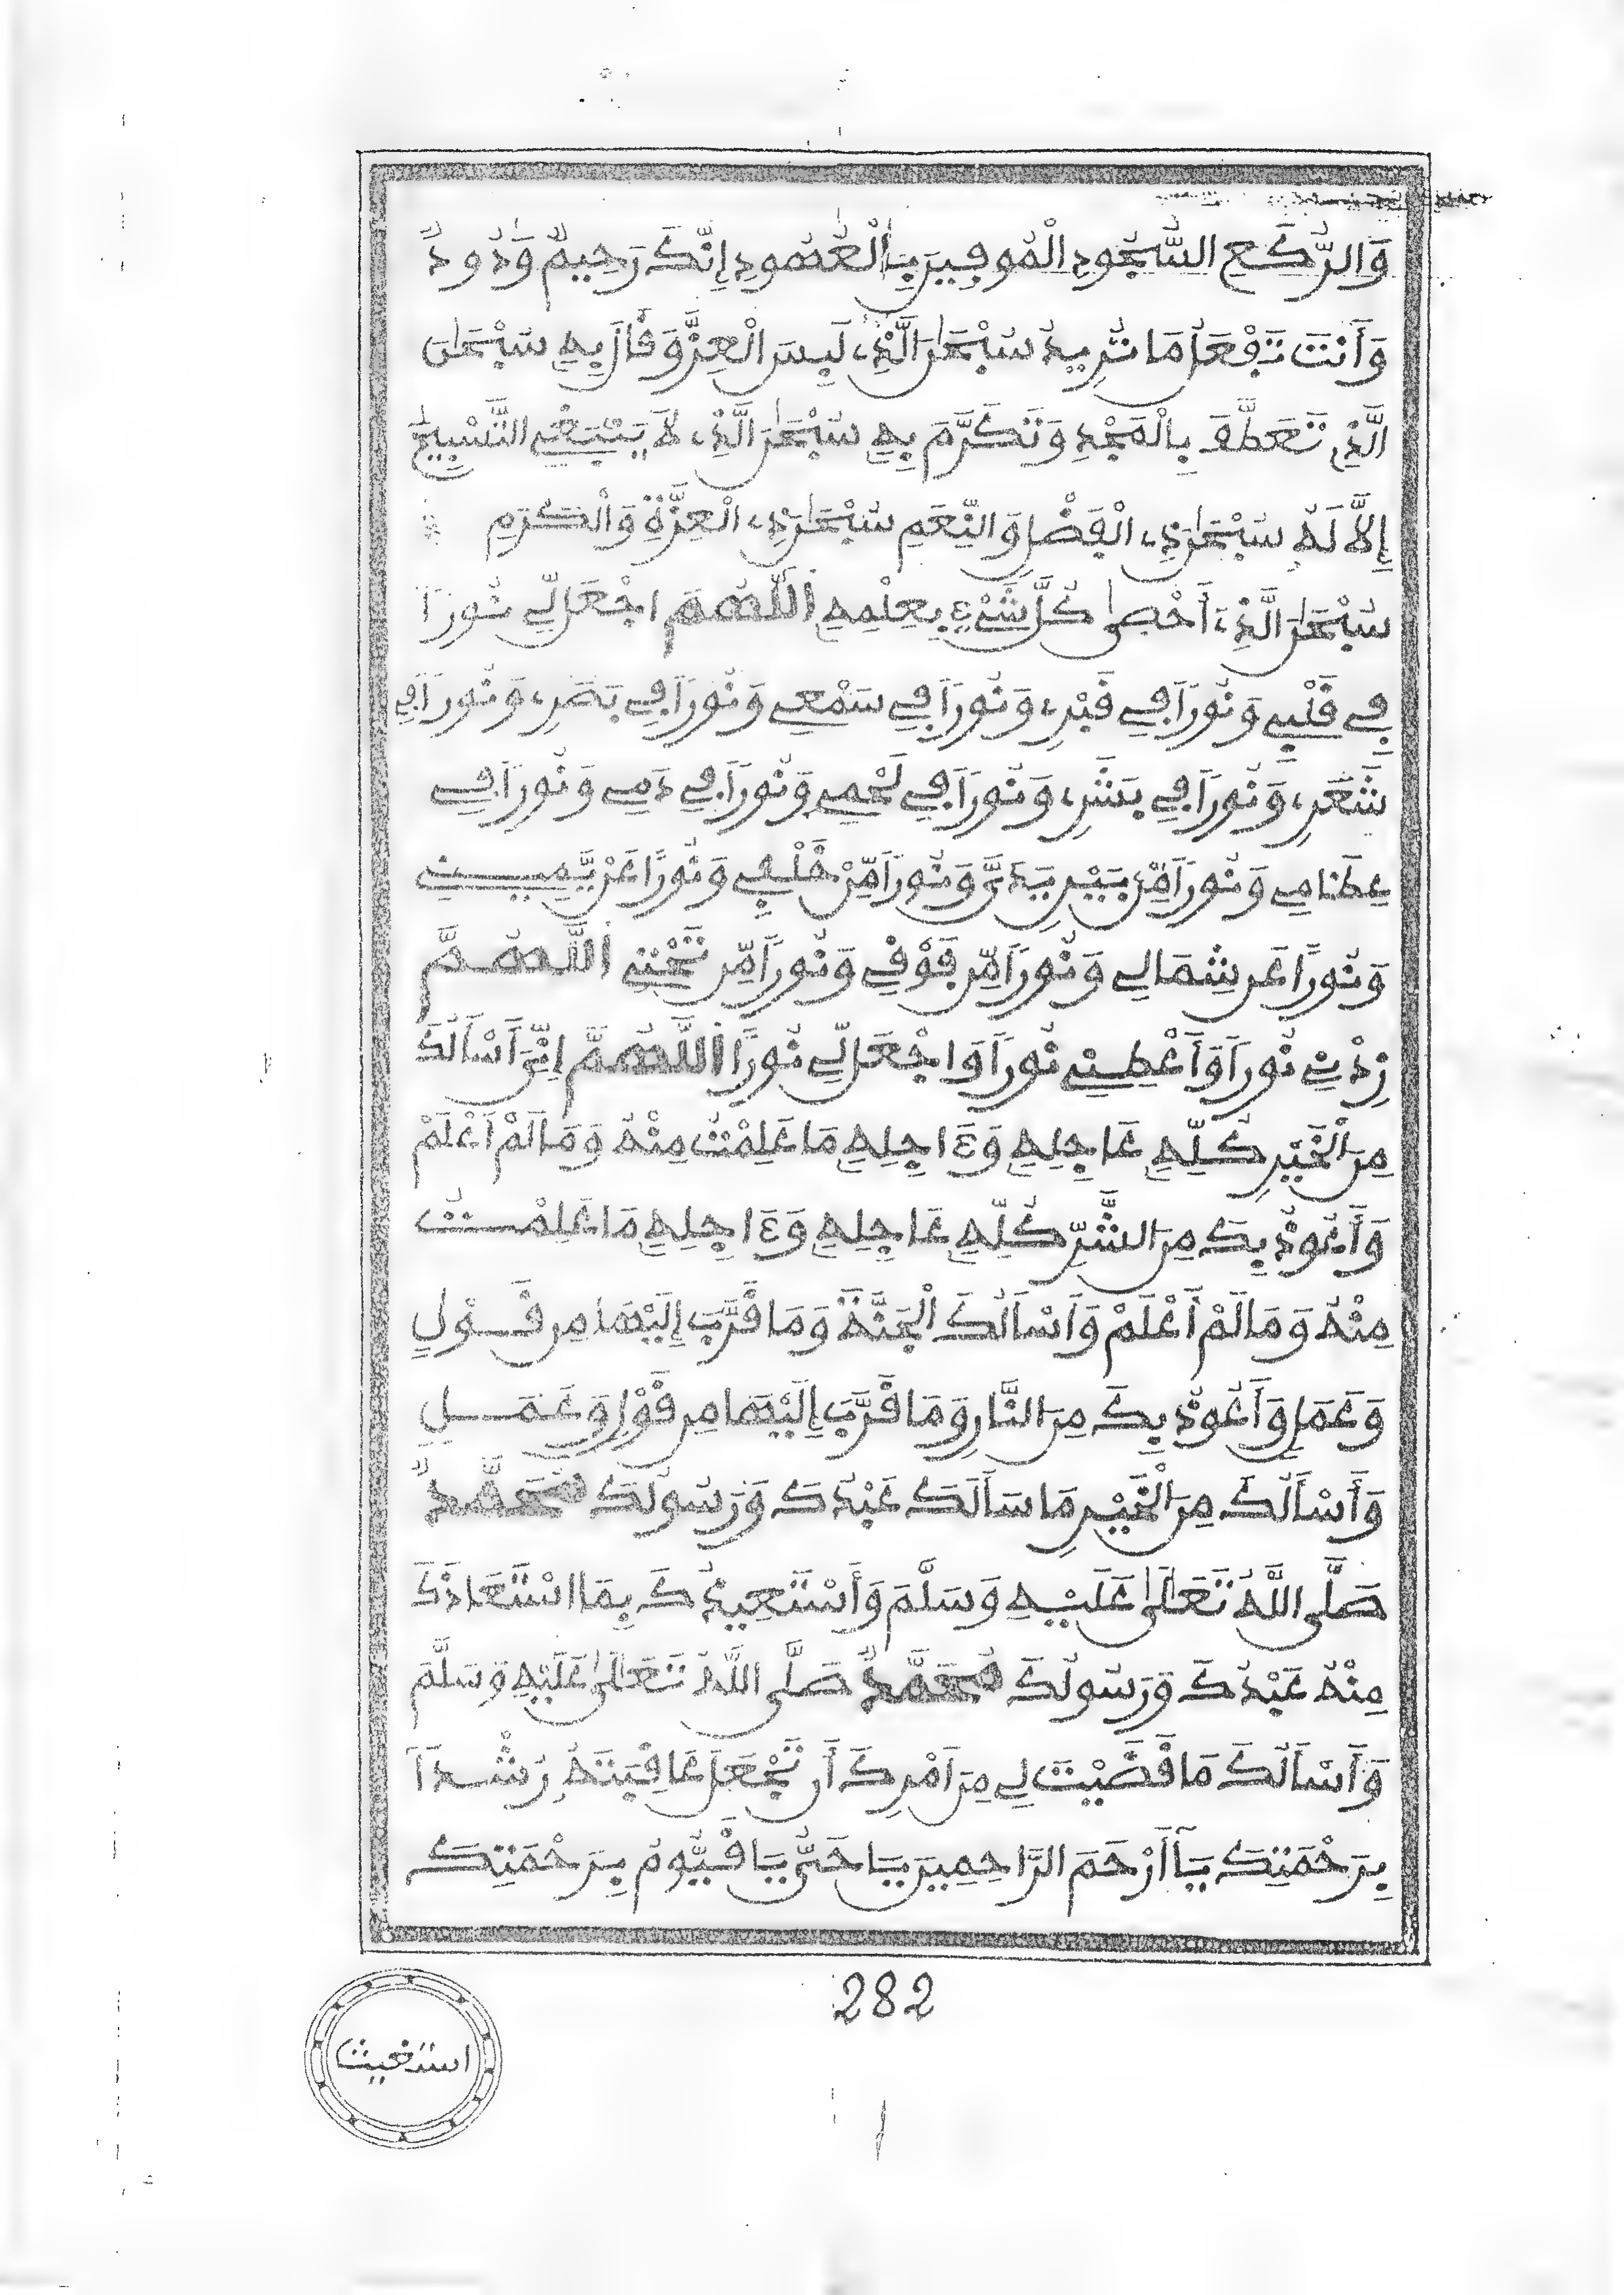 وَالرُّكَّعِ السُّجُودِ الْمُوفِينَ بِالْعُهُودِ إِنَّكَ رَحِيمٌ وَدُودٌ
وَأَنْتَ تَفْعَلُ مَا تُرِيدُ سُبْحَٰنَ الَّذِي لَبِسَ الْعِزَّ وَقَالَ بِهِ سُبْحَٰنَ
الَّذِي تَعَطَّفَ بِالْمَجْدِ وَتَكَرَّمَ بِهِ سُبْحَٰنَ الَّذِي لَا يَنْبَغِي التَّسْبِيحُ
إِلَّا لَهُ سُبْحَٰنَ ذِي الْفَضْلِ وَالنِّعَمِ سُبْحَٰنَ ذِي الْعِزَّةِ وَالْكَرَمِ
سُبْحَٰنَ الَّذِي أَحْصَىٰ كُلَّ شَيْءٍ بِعِلْمِهِ اللَّهُمَّ اجْعَل لِّي نُورًا
فِي قَلْبِي وَنُورًا فِي قَبْرِي وَنُورًا فِي سَمْعِي وَنُورًا فِي بَصَرِي وَنُورًا فِي
شَعَرِي وَنُورًا فِي بَشَرِي وَنُورًا فِي لَحْمِي وَنُورًا فِي دَمِي وَنُورًا فِي
عِظَامِي وَنُورًا مِّنْ بَيْنِ يَدَيَّ وَنُورًا مِّنْ خَلْفِي وَنُورًا عَنْ يَّمِينِي
وَنُورًا عَن شِمَالِي وَنُورًا مِّن فَوْقِي وَنُورًا مِّن تَحْتِي اللَّهُمَّ
زِدْنِي نُورًا وَأَعْطِنِي نُورًا وَاجْعَل لِّي نُورًا اللَّهُمَّ إِنِّي أَسْأَلُكَ
مِنَ الْخَيْرِ كُلِّهِ عَاجِلِهِ وَءَاجِلِهِ مَا عَلِمْتُ مِنْهُ وَمَا لَمْ أَعْلَمْ
وَأَعُوذُ بِكَ مِنَ الشَّرِّ كُلِّهِ عَاجِلِهِ وَءَاجِلِهِ مَا عَلِمْتُ
مِنْهُ وَمَا لَمْ أَعْلَمْ وَأَسْأَلُكَ الْجَنَّةَ وَمَا قَرَّبَ إِلَيْهَا مِن قَوْلٍ
وَعَمَلٍ وَأَعُوذُ بِكَ مِنَ النَّارِ وَمَا قَرَّبَ إِلَيْهَا مِن قَوْلٍ وَعَمَلٍ
وَأَسْأَلُكَ مِنَ الْخَيْرِ مَا سَأَلَكَ عَبْدُكَ وَرَسُولُكَ مُحَمَّدٌ
صَلَّى اللَّهُ تَعَالَىٰ عَلَيْهِ وَسَلَّمَ وَأَسْتَعِيذُكَ بِمَا اسْتَعَاذَكَ
مِنْهُ عَبْدُكَ وَرَسُولُكَ مُحَمَّدٌ صَلَّى اللَّهُ تَعَالَىٰ عَلَيْهِ وَسَلَّمَ
وَأَسْأَلُكَ مَا قَضَيْتَ لِي مِنَ امْرِكَ أَن تَجْعَلَ عَاقِبَتَهُ رُشْدًا
بِرَحْمَتِكَ يَا أَرْحَمَ الرَّاحِمِينَ يَا حَيُّ يَا قَيُّومُ بِرَحْمَتِكَ
282
استغيث